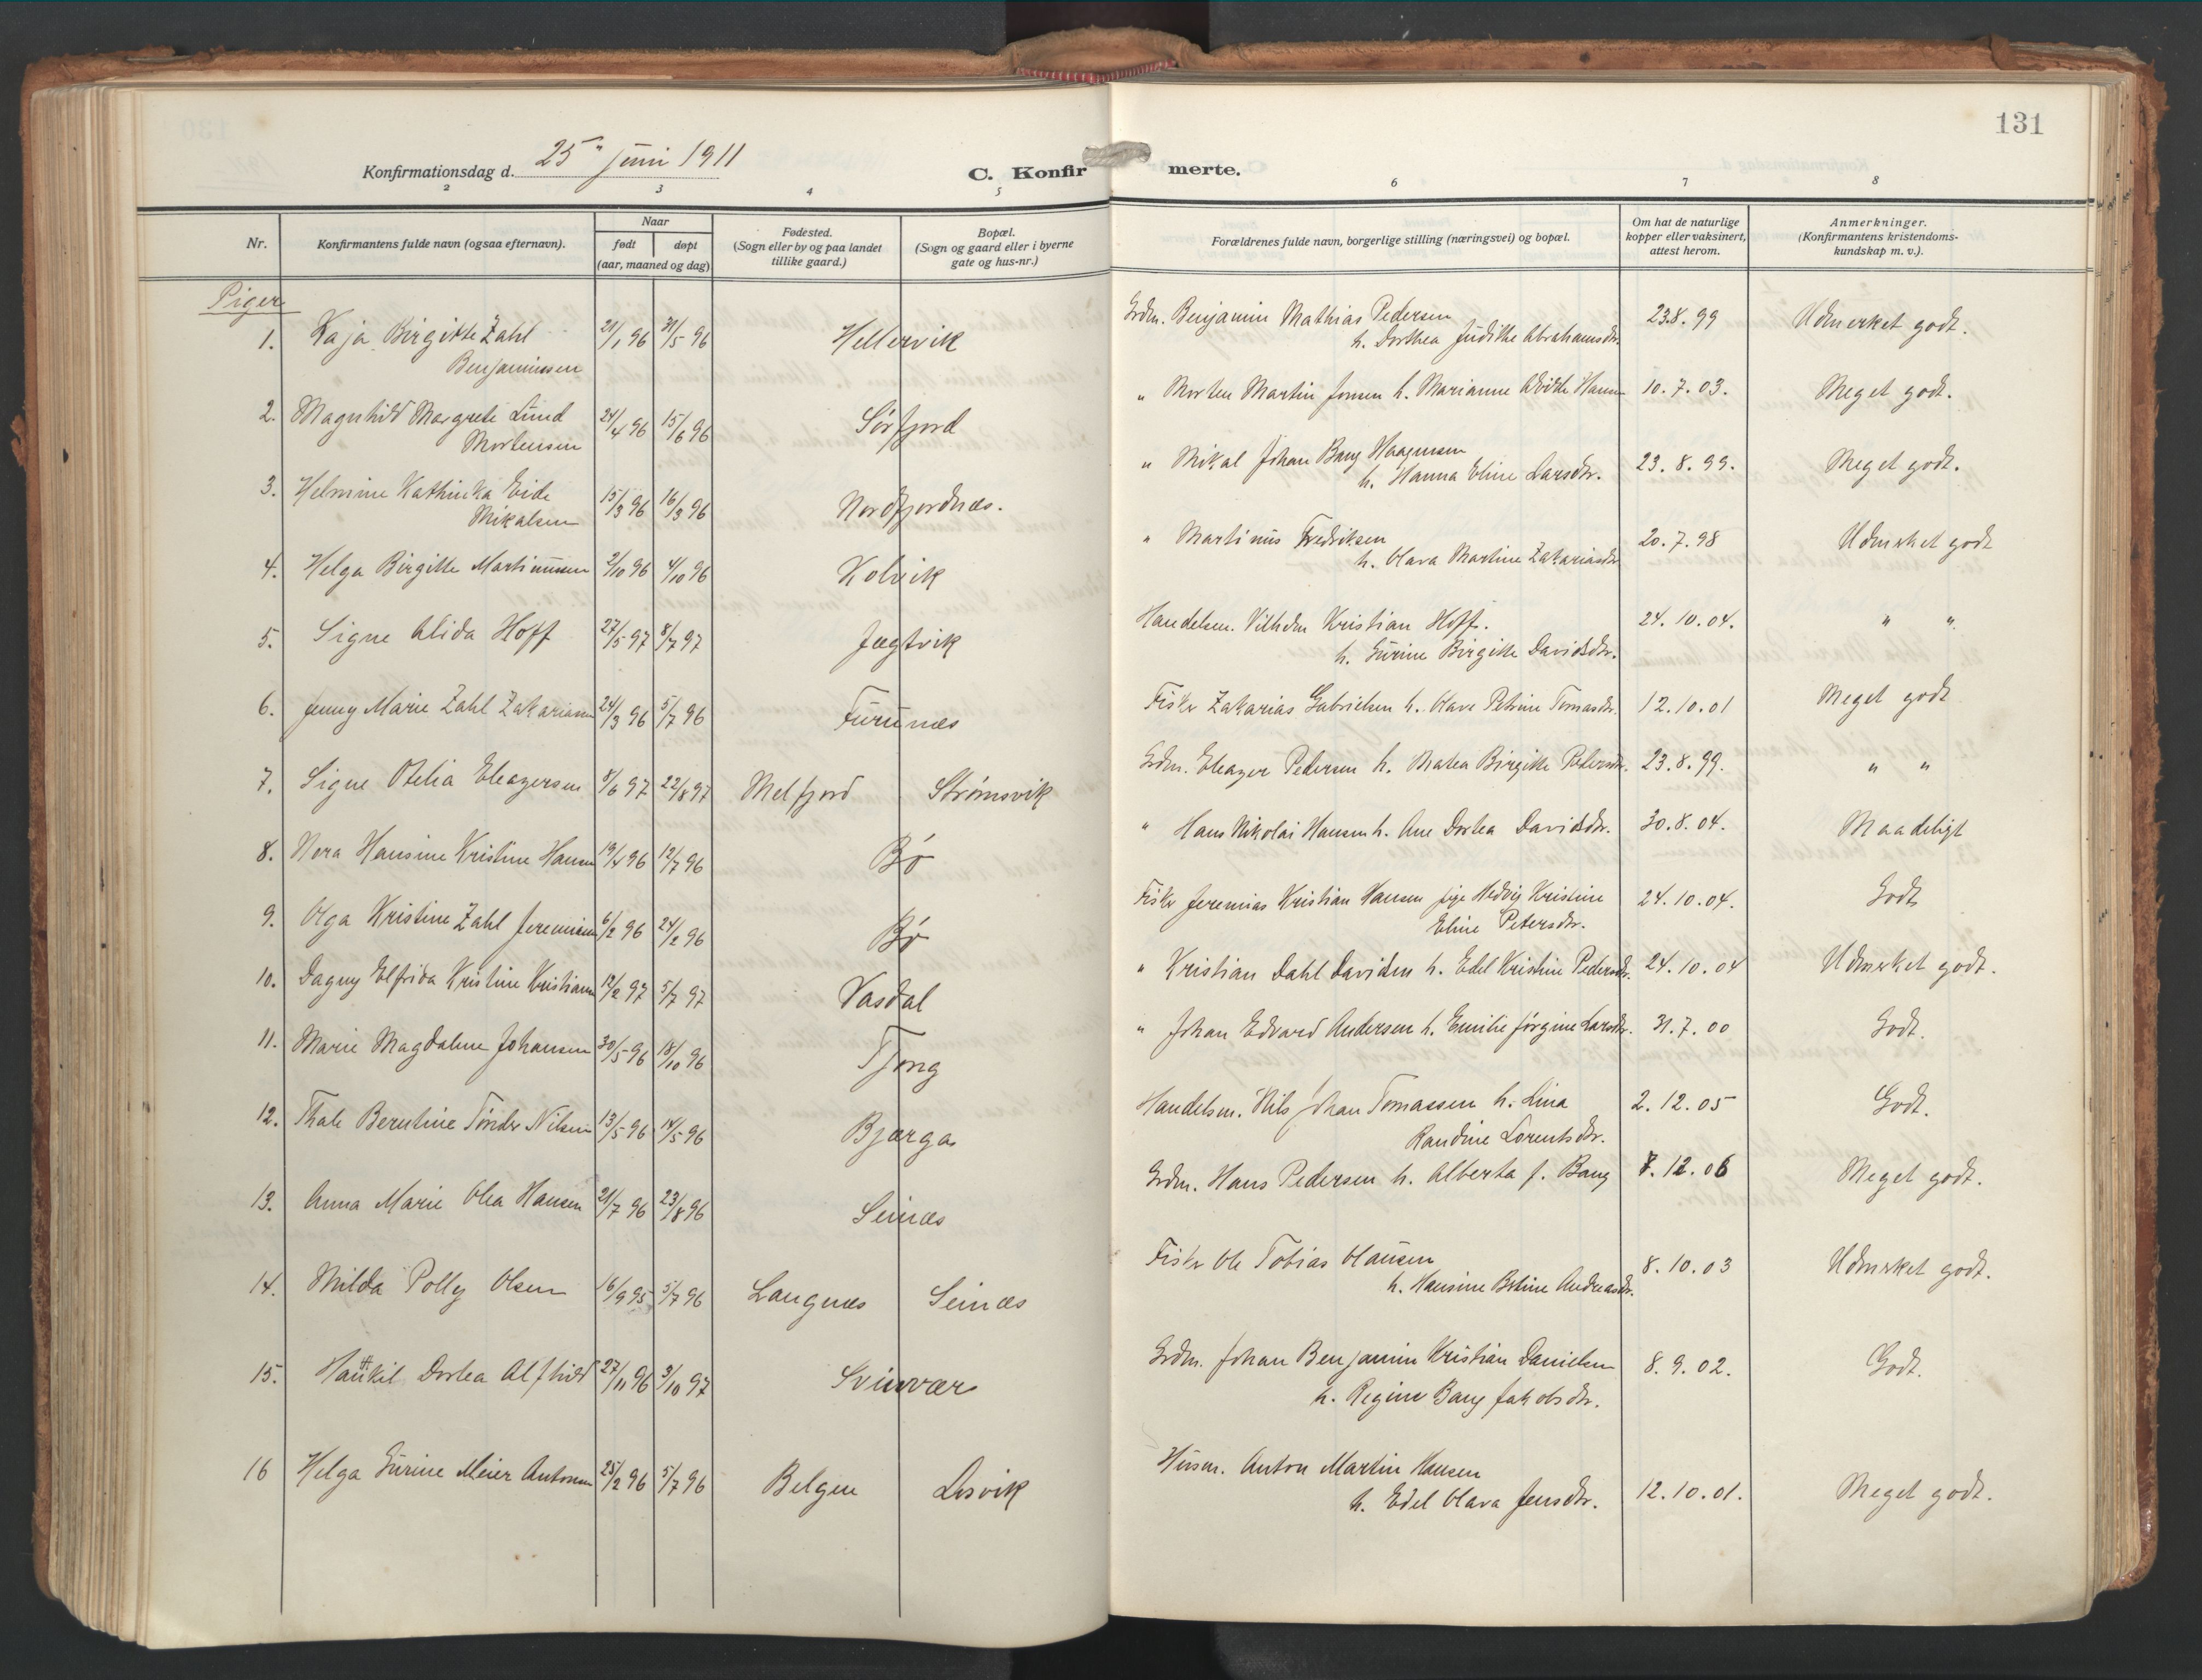 131
Konfirmationsdag d. 25" juni 1911
C. Konfir merte.
2 3 4 5 6 7 8
Nr.
Konfirmantens fulde navn (ogsaa efternavn).
Naar
født døpt
(aar, maaned og dag)
Fødested.
(Sogn eller by og paa landet
tillike gaard.)
Bopæl.
(Sogn og gaard eller i byerne
gate og hus-nr.)
Forældrenes fulde navn, borgerlige stilling (næringsvei) og bopæl.
Om hat de naturlige
kopper eller vaksinert,
attest herom.
Anmerkninger.
(Konfirmantens kristendoms-
kundskap m. v.).
Piger
1. Kaja Birgitte Zahl 21/1 96 31/5 96 Hellervik Grdm. Benjamin Mathias Pedersen 23.8.99 Udmerket godt.
Benjaminsen h. Dorthea Judithe Abrahamsdtr.
2. Magnhild Margrete Lund 24/4 96 15/6 96 Sørfjord " Morten Martin Jonsen h. Marianne Hansen 10.7.03. Meget godt.
Mortensen
3. Helmine Kathinka Eide 15/3 96 16/3 96 Nordfjordnæs. " Mikal Johan Bang Haagensen 23.8.99. Meget godt.
Mikalsen h. Hanna Eline Larsdtr.
4. Helga Birgitte Martinussen 2/10 96 4/10 96 Kolvik " Martinus Fredriksen 20.7.98 Udmerket godt
h. Olava Martine Zakariasdtr
5. Signe Alida Hoff 27/5 97 8/7 97 Jægtvik Handelsm. Vilhelm Kristian Hoff. 24.10.04. " "
h. Gurine Birgitte Davidsdtr.
6. Jenny Marie Zahl Zakariassen 24/3 96 5/7 96 Furunæs Fisker Zakarias Gabrielsen h. Olava Petrine Tomasdtr. 12.10.01 Meget godt
7. Signe Otelia Eleazersen 8/6 97 22/8 97 Melfjord Strømsvik Grdm. Eleazer Pedersen h. Matea Birgitte Petersdtr. 23.8.99. " "
8. Nora Hansine Kristine Hansen 19/4 96 12/7 96 Bø " Hans Nikolai Hansen h. Ane Dortea Davidsdtr. 30.8.04. Maadeligt
9. Olga Kristine Zahl Jeremiassen 6/2 96 24/2 96 Bø Fisker Jeremias Kristian Hansen pige Hedvig Kristine 24.10.04. Godt
Eline Petersdtr.
10. Dagny Elfrida Kristine Kristiansen 12/2 97 5/7 97 Vasdal " Kristian Dahl Davidsen h. Edel Kristine Pedersdtr. 24.10.04 Udmerket godt.
11. Marie Magdalene Johansen 30/5 96 18/10 96 Tjong " Johan Edvard Andersen h. Emilie Jørgine Larsdtr. 31.7.00 Godt.
12. Thale Berntine Tønder Nilsen 13/5 96 14/5 96 Bjærga Handelsm. Nils Johan Tomassen h. Lina 2.12.05 Godt.
Randine Lorentsdtr.
13. Anna Marie Olea Hansen 21/7 96 23/8 96 Seinæs Grdm. Hans Pedersen h. Alberta f. Bang 8.12.06 Meget godt.
14. Milda Polly Olsen 16/9 95 5/7 96 Langnæs Seinæs Fisker Ole Tobias Olausen 8.10.03 Udmerket godt.
h. Hansine Andreasdtr.
15. Dortea Alfhild 27/11 96 3/10 97 Svinvær Grdm. Johan Benjamin Kristian Danielsen 8.9.02. Godt.
h. Regine Bang Jakobsdtr.
16 Helga Gurine Meier Antonsen 25/2 96 5/7 96 Belgen Lisvik Husm. Anton Martin Hansen 12.10.01. Meget godt.
h. Edel Olava Jensdtr.